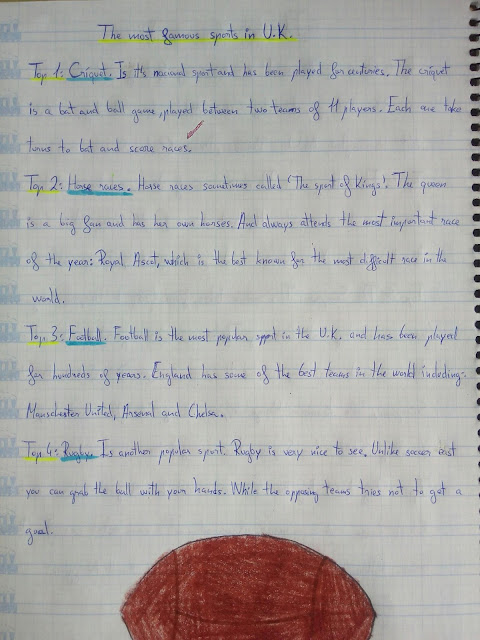 The most famous sports in U.K.
Top 1: Criquet. Is it's nacional sport and has been played for centuries. The criquet
is a bat and ball game, played between two teams of 11 players. Each one take
turns to bat and score races.
Top 2: Horse races. Horse races sometimes called 'The sport of Kings'. The queen
is a big fan and has her own horses. And always attends the most important race
of the year: Royal Ascot, which is the best known for the most difficult race in the
world.
Top 3: Football. Football is the most popular sport in the U.K. and has been played
for hundreds of years. England has some of the best teams in the world including:
Manschester United, Arsenal and Chelsea.
Top 4: Rugby. Is another popular sport. Rugby is very nice to see. Unlike soccer
you can grab the ball with your hands. While the opposing teams tries not to get a
goal.